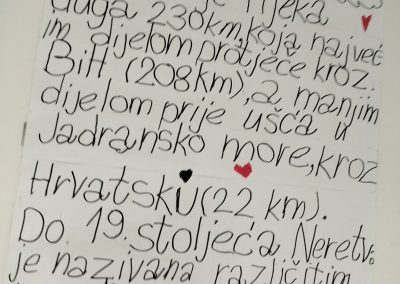 duga 230km, koja najveć
im dijelom protječe kroz
BiH (208km), a manjim
dijelom prije ušća u
Jadransko more, kroz
Hrvatsku (22 km).
Do 19. stoljeća Neretv
je nazivana različitim